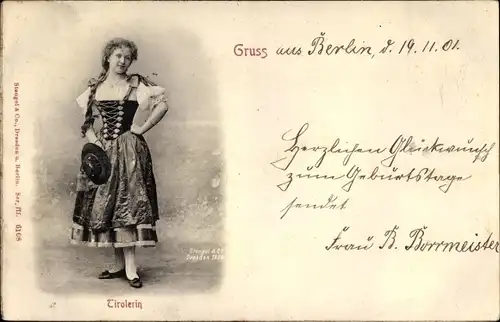 Gruss aus Berlin, d. 19.11.01.
Herzlichen Glückwunsch
zum Geburtstage
sendet
Frau B. Borrmeister
Stengel & Co., Dresden u. Berlin. Ser. III. 6168
Stengel & Co
Dresden
Tirolerin